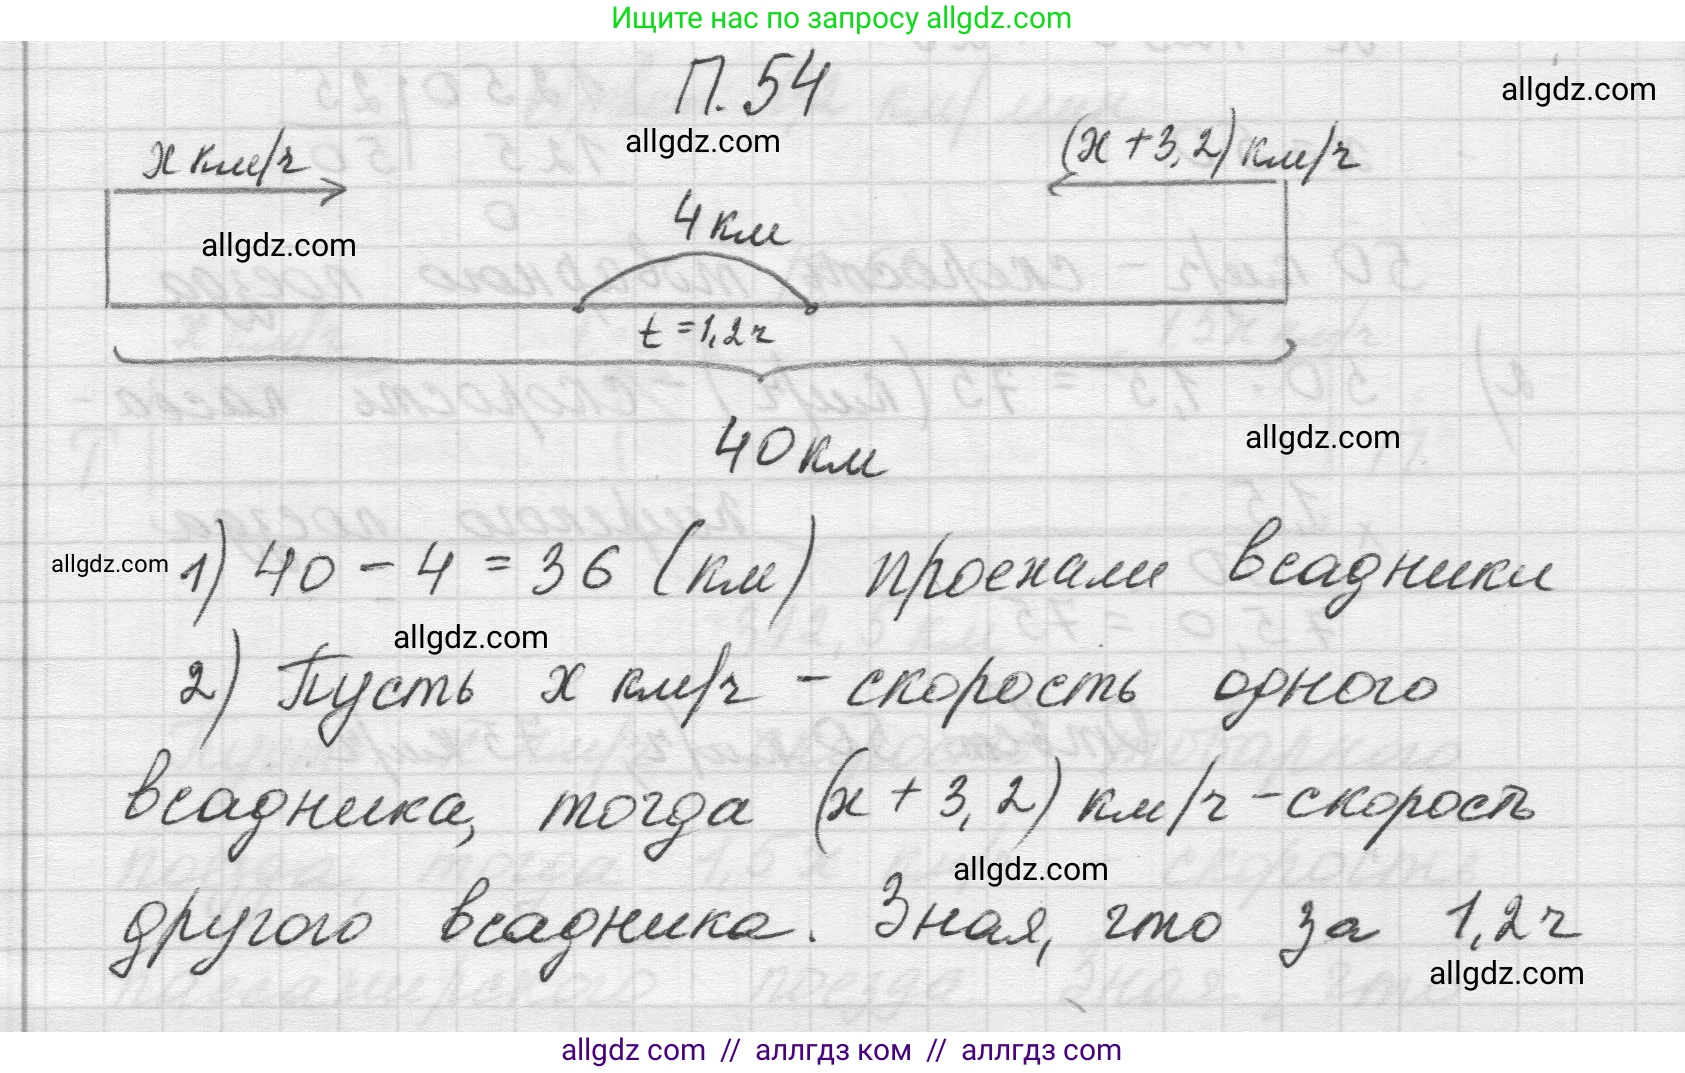 Ищите нас по запросу allgdz.com
П.54
allgdz.com
allgdz.com
x км/ч
(x + 3,2) км/ч
4 км
allgdz.com
t = 1,2 ч
40 км
allgdz.com
allgdz.com
1) 40 - 4 = 36 (км) проехали всадники
allgdz.com
2) Пусть x км/ч - скорость одного
всадника, тогда (x + 3,2) км/ч - скорость
allgdz.com
другого всадника. Зная, что за 1,2 ч
allgdz.com
allgdz com // аллгдз ком // аллгдз com